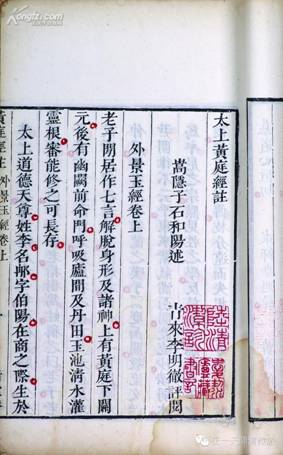 Kongfz.com
太上黃庭經註
嵩隱子石和陽述
來李明徹評閱
外景玉經卷上
老子閒居作七言解脫身形及諸神上有黃庭下關
元後有幽闕前命門呼吸廬間及丹田玉池清水灌
靈根審能修之可長存
太上道德天尊姓李名耼字伯陽在商之際生於
黃庭經註 外景玉經卷上 一